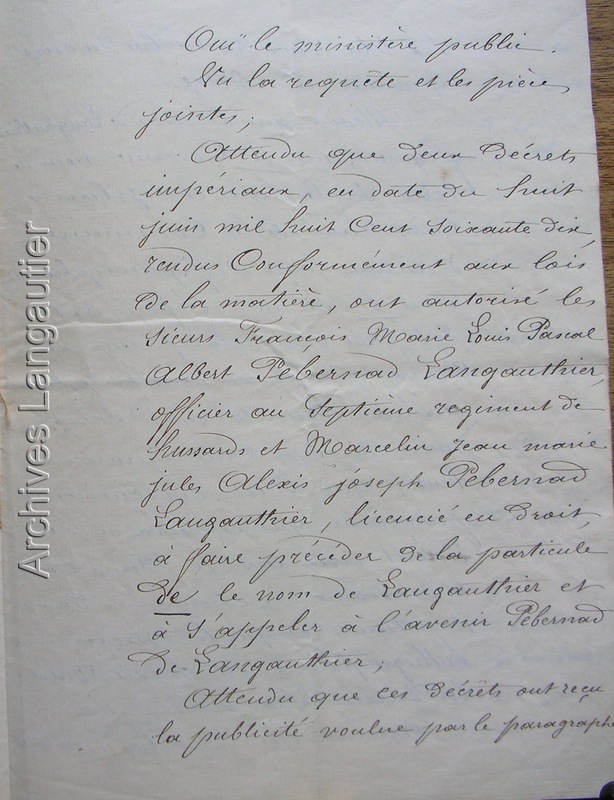 Ouï le ministère public.
Vu la requête et les pièces
jointes;
Attendu que deux décrets
impériaux, en date du huit
juin mil huit Cent soixante dix,
rendus Conformément aux lois
de la matière, ont autorisé les
sieurs François Marie Louis Pascal
Albert Pébernad Langauthier,
officier au Septième regiment de
hussards et Marcelin Jean marie
jules Alexis joseph Pebernad
Langauthier, licencié en droit,
à faire précéder de la particule
de le nom de Langauthier et
à s'appeler à l'avenir Pebernad
de Langauthier;
Attendu que ces décrets ont reçu
la publicité voulue par le paragraphe
Archives Langautier